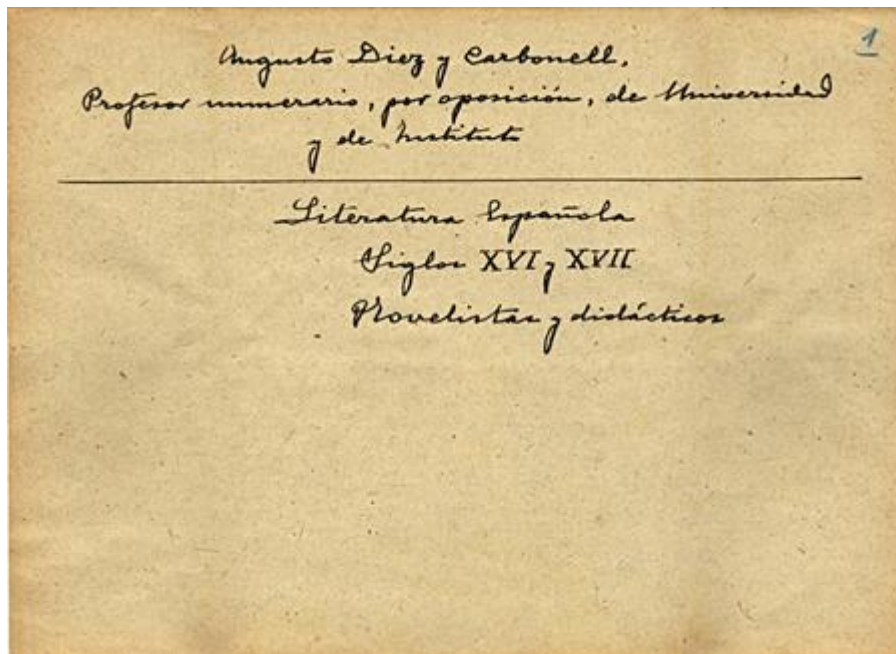 1
Augusto Diez y Carbonell,
Profesor numerario, por oposición, de Universidad
y de Instituto
Literatura Española
Siglos XVI y XVII
Novelistas y didácticos